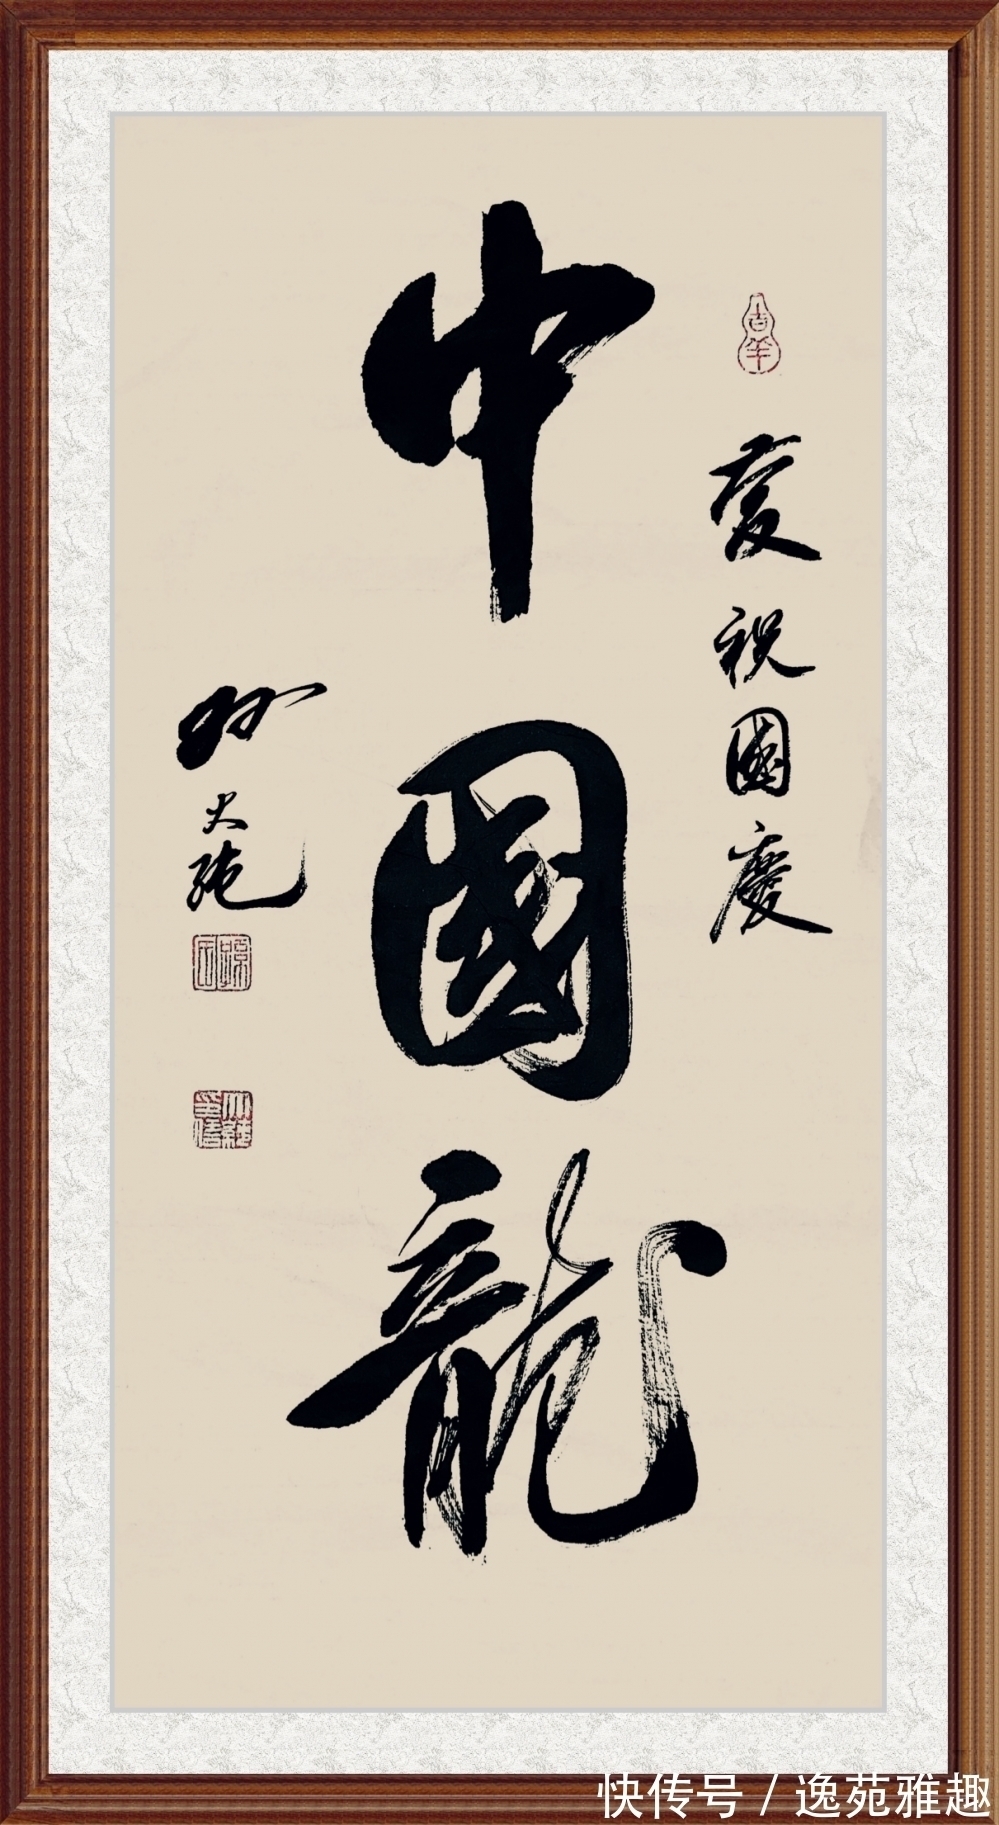 吉羊
慶祝國慶
中國龍
快传号 / 逸苑雅趣